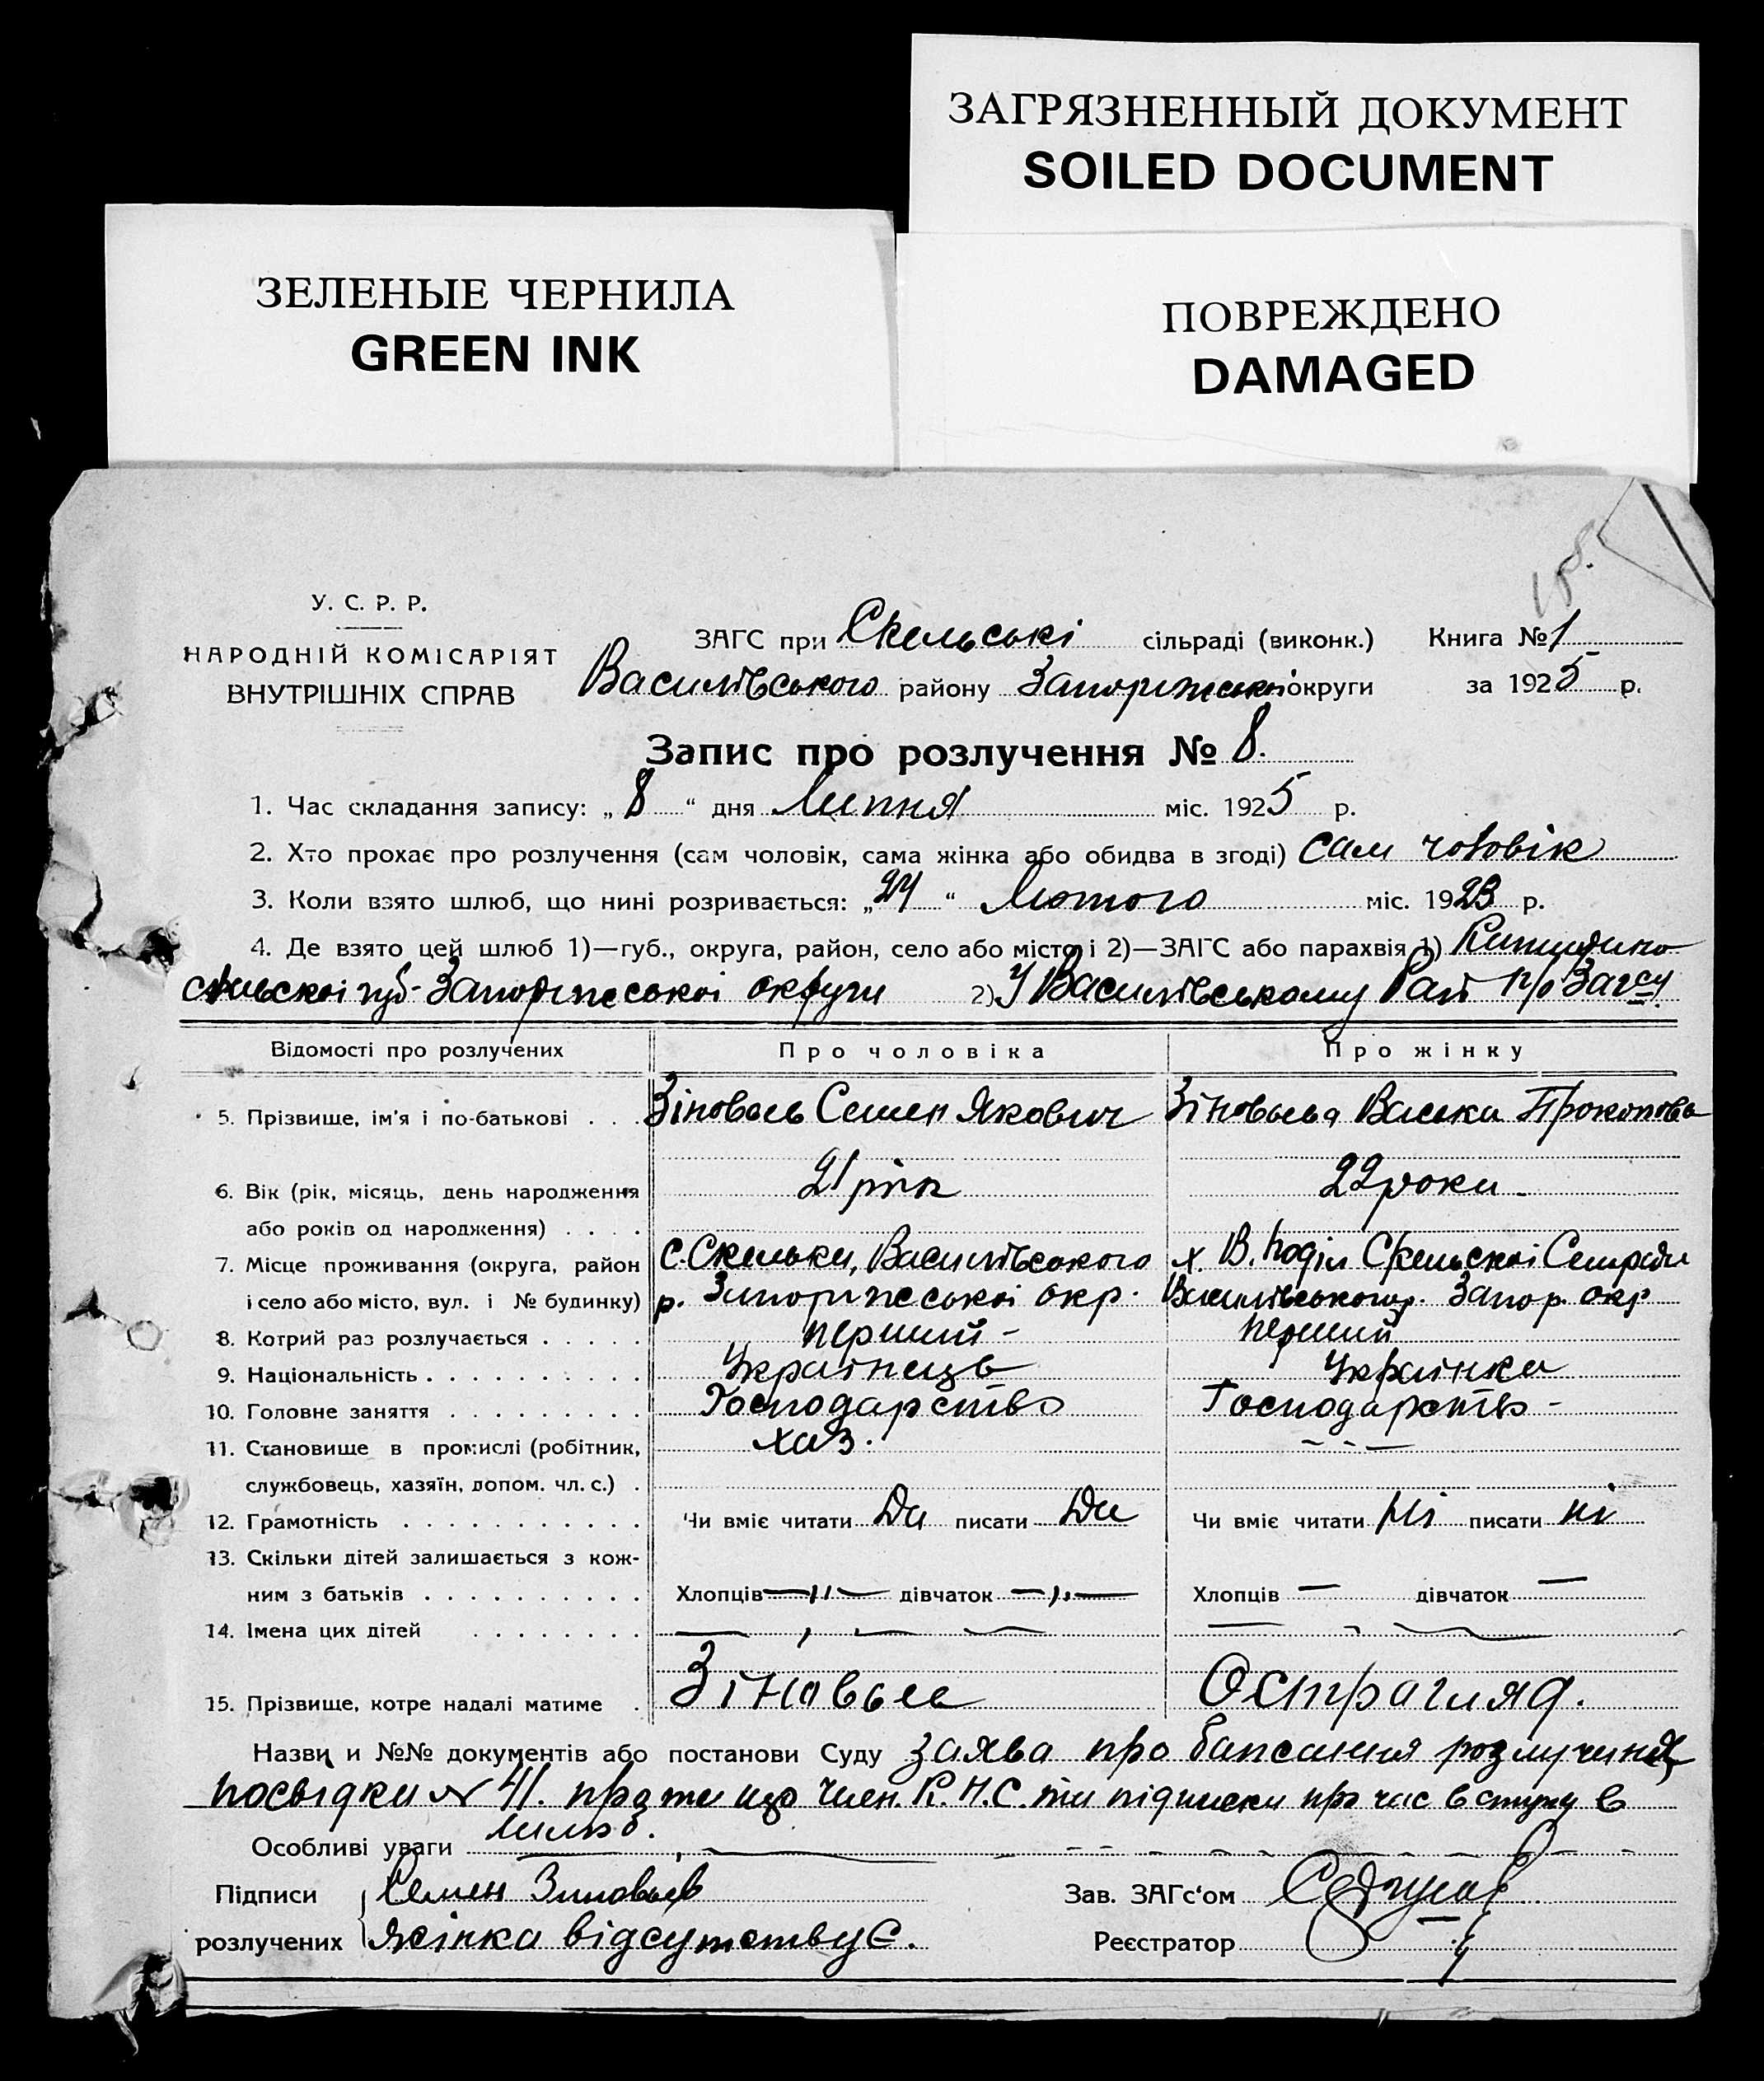 ЗАГРЯЗНЕННЫЙ ДОКУМЕНТ
SOILED DOCUMENT
ЗЕЛЕНЫЕ ЧЕРНИЛА
GREEN INK
ПОВРЕЖДЕНО
DAMAGED
У. С. Р. Р.
НАРОДНІЙ КОМІСАРІЯТ
ВНУТРІШНІХ СПРАВ
ЗАГС при Скельські сільраді (виконк.) Книга № 1
Василівського району Запоріжської округи за 1925 р.
Запис про розлучення № 8.
1. Час складання запису: „ 8 “ дня Липня міс. 1925 р.
2. Хто прохає про розлучення (сам чоловік, сама жінка або обидва в згоді) сам чоловік
3. Коли взято шлюб, що нині розривається: „ 24 “ Лютого міс. 1923 р.
4. Де взято цей шлюб 1)—губ., округа, район, село або місто, і 2)—ЗАГС або парахвія 1)
губ. Запоріжської округи 2) У Василівському Рай п/о Загсу
Відомості про розлучених Про чоловіка Про жінку
5. Прізвище, ім'я і по-батькові . . . Зіновьев Семен Якович Зіновьева Васька Прокопова
6. Вік (рік, місяць, день народження 21 рік 22 роки
або років од народження) . . . .
7. Місце проживання (округа, район с. Скельки, Василівського х. В. Поділ Скельскої Сельради
і село або місто, вул. і № будинку) р. Запоріжської окр. Василівського р. Запор. окр
8. Котрий раз розлучається . . . . . перший - перший
9. Національність . . . . . . . . . . Українець Українка
10. Головне заняття . . . . . . . . . Господарство Господарство -
11. Становище в промислі (робітник, хаз.
службовець, хазяїн, допом. чл. с.) .
12. Грамотність . . . . . . . . . . . Чи вміє читати Да писати Да Чи вміє читати Ні писати ні
13. Скільки дітей залишається з кож-
ним з батьків . . . . . . . . . . Хлопців —"— дівчаток —"— Хлопців — дівчаток —
14. Імена цих дітей . . . . . . . .
15. Прізвище, котре надалі матиме . Зіновьев Острагляд.
Назви и №№ документів або постанови Суду заява про розлучення
посвідки № 41. про те що член. К.Н.С. та підписки про час вступу в
шлюб.
Особливі уваги
Підписи Семен Зиновьев Зав. ЗАГс‘ом
розлучених жінка відсутствує. Реєстратор